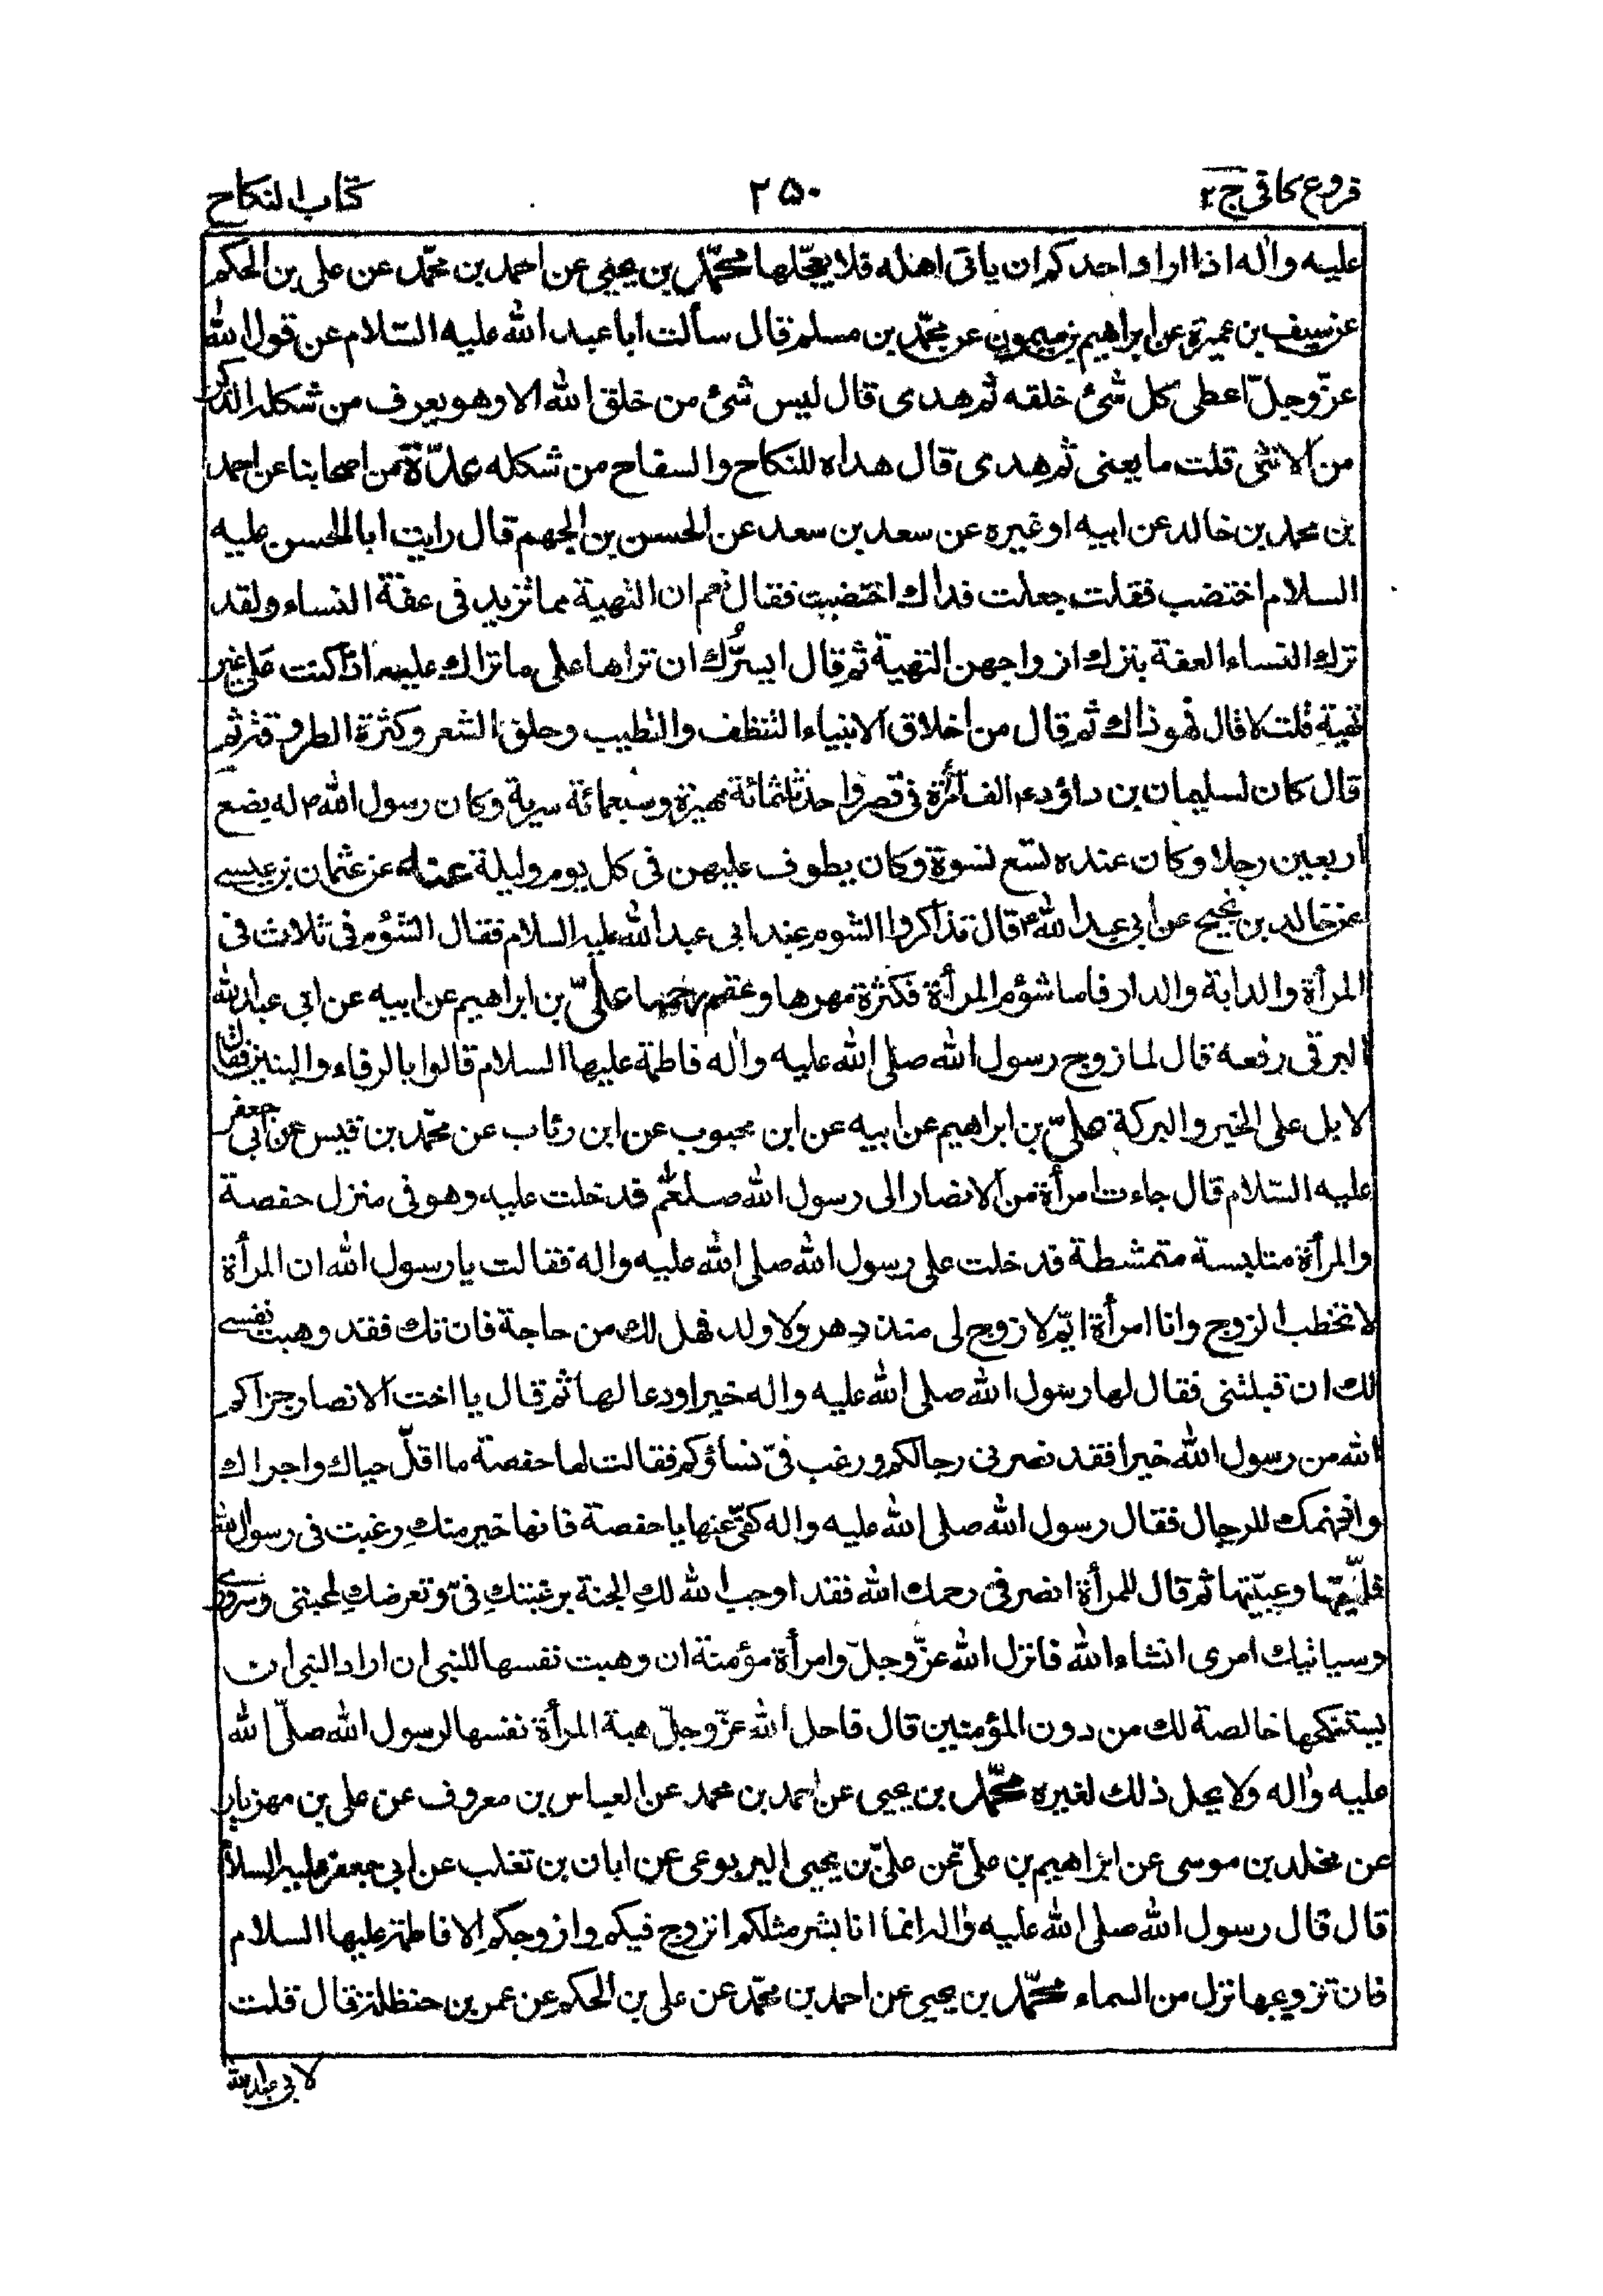 فروع كافى ج ٢
٢٥٠
كتاب النكاح
عليه واٰله اذا اراد احدكم ان ياتى اهله فلا يعجّلها محمّد بن يحيى عن احمد بن محمّد عن على بن الحكم
عن سيف بن عميرة عن ابراهيم بن ميمون عن محمّد بن مسلم قال سألت ابا عبد الله عليه السّلام عن قول الله
عزّ وجلّ اعطى كل شئ خلقه ثم هدى قال ليس شئ من خلق الله الا وهو يعرف من شكله الذكر
من الانثى قلت ما يعنى ثم هدى قال هداه للنكاح والسفاح من شكله عدّة من اصحابنا عن احمد
بن محمد بن خالد عن ابيه او غيره عن سعد بن سعد عن الحسن بن الجهم قال رايت ابا الحسن عليه
السلام اختضب فقلت جعلت فداك اختضبت فقال نعم ان التهية مما تزيد فى عفة النساء ولقد
ترك النساء العفة بترك ازواجهن التهية ثم قال ايسرُّك ان تراها على ما تراك عليه اذا كنت على غير
تهية قلت لا قال فهو ذاك ثم قال من اخلاق الانبياء التنظف والتطيب وحلق الشعر وكثرة الطروقة ثم
قال كان لسليمان بن داؤد ع الف امرأة فى قصر واحد ثلثمائة مهيرة وسبعمائة سرية وكان رسول الله ص له بضع
اربعين رجلا وكان عنده تسع نسوة وكان يطوف عليهن فى كل يوم وليلة عنه عن عثمان بن عيسى
عن خالد بن نجيح عن ابى عبد الله ع قال تذاكروا الشوم عند ابى عبد الله عليه السلام فقال الشؤم فى ثلاث فى
المرأة والدابة والدار فاما شؤم المرأة فكثرة مهرها وعقم رحمها علىّ بن ابراهيم عن ابيه عن ابى عبد الله
البرقى رفعه قال لما زوج رسول الله صلى الله عليه واٰله فاطمة عليها السلام قالوا بالرفاء والبنين فقال
لا بل على الخير والبركة علىّ بن ابراهيم عن ابيه عن ابن محبوب عن ابن رئاب عن محمّد بن قيس عن ابى جعفر
عليه السّلام قال جاءت امرأة من الانصار الى رسول الله صلعم قدخلت عليه وهو فى منزل حفصة
والمرأة متلبسة متمشطة قدخلت على رسول الله صلى الله عليه واله فقالت يا رسول الله ان المرأة
لا تخطب الزوج وانا امرأة ايّم لا زوج لى منذ دهر ولا ولد فهل لك من حاجة فان تك فقد وهبت نفسى
لك ان قبلتنى فقال لها رسول الله صلى الله عليه واله خيرا ودعا لها ثم قال يا اخت الانصار جزاكم
الله من رسول الله خيرا فقد نصرنى رجالكم ورغب فىّ نساؤكم فقالت لها حفصة ما اقلّ حياك واجراك
وانهمك للرجال فقال رسول الله صلى الله عليه واله كفّى عنها يا حفصة فانها خير منكِ رغبت فى رسول الله
فلمتّها وعيبّتها ثم قال للمرأة انصرفى رحمك الله فقد اوجب الله لكِ الجنة برغبتكِ فىّ وتعرضكِ لمحبتى وسرورى
وسياتيك امرى انشاء الله فانزل الله عزّ وجلّ وامرأة مؤمنة ان وهبت نفسها للنبى ان اراد النبى ان
يستنكحها خالصة لك من دون المؤمنين قال فاحل الله عزّ وجلّ هبة المرأة نفسها لرسول الله صلّى الله
عليه واٰله ولا يحل ذلك لغيره محمّد بن يحيى عن احمد بن محمد عن العباس بن معروف عن على بن مهزيار
عن مخلد بن موسى عن ابراهيم بن علىّ عن علىّ بن يحيى اليربوعى عن ابان بن تغلب عن ابى جعفر عليه السلام
قال قال رسول الله صلى الله عليه واٰله انما انا بشر مثلكم اتزوج فيكم وازوجكم الا فاطمة عليها السلام
فان تزويجها نزل من السماء محمّد بن يحيى عن احمد بن محمّد عن على بن الحكم عن عمر بن حنظلة قال قلت
لابى عبد الله